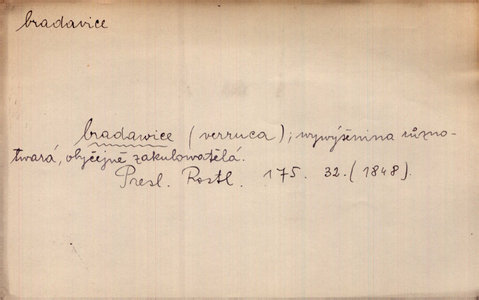 bradavice
bradawice (verruca); wywýšenina různo-
twará, obyčejně zakulowatělá.
Presl. Rostl. 175. 32. (1848).